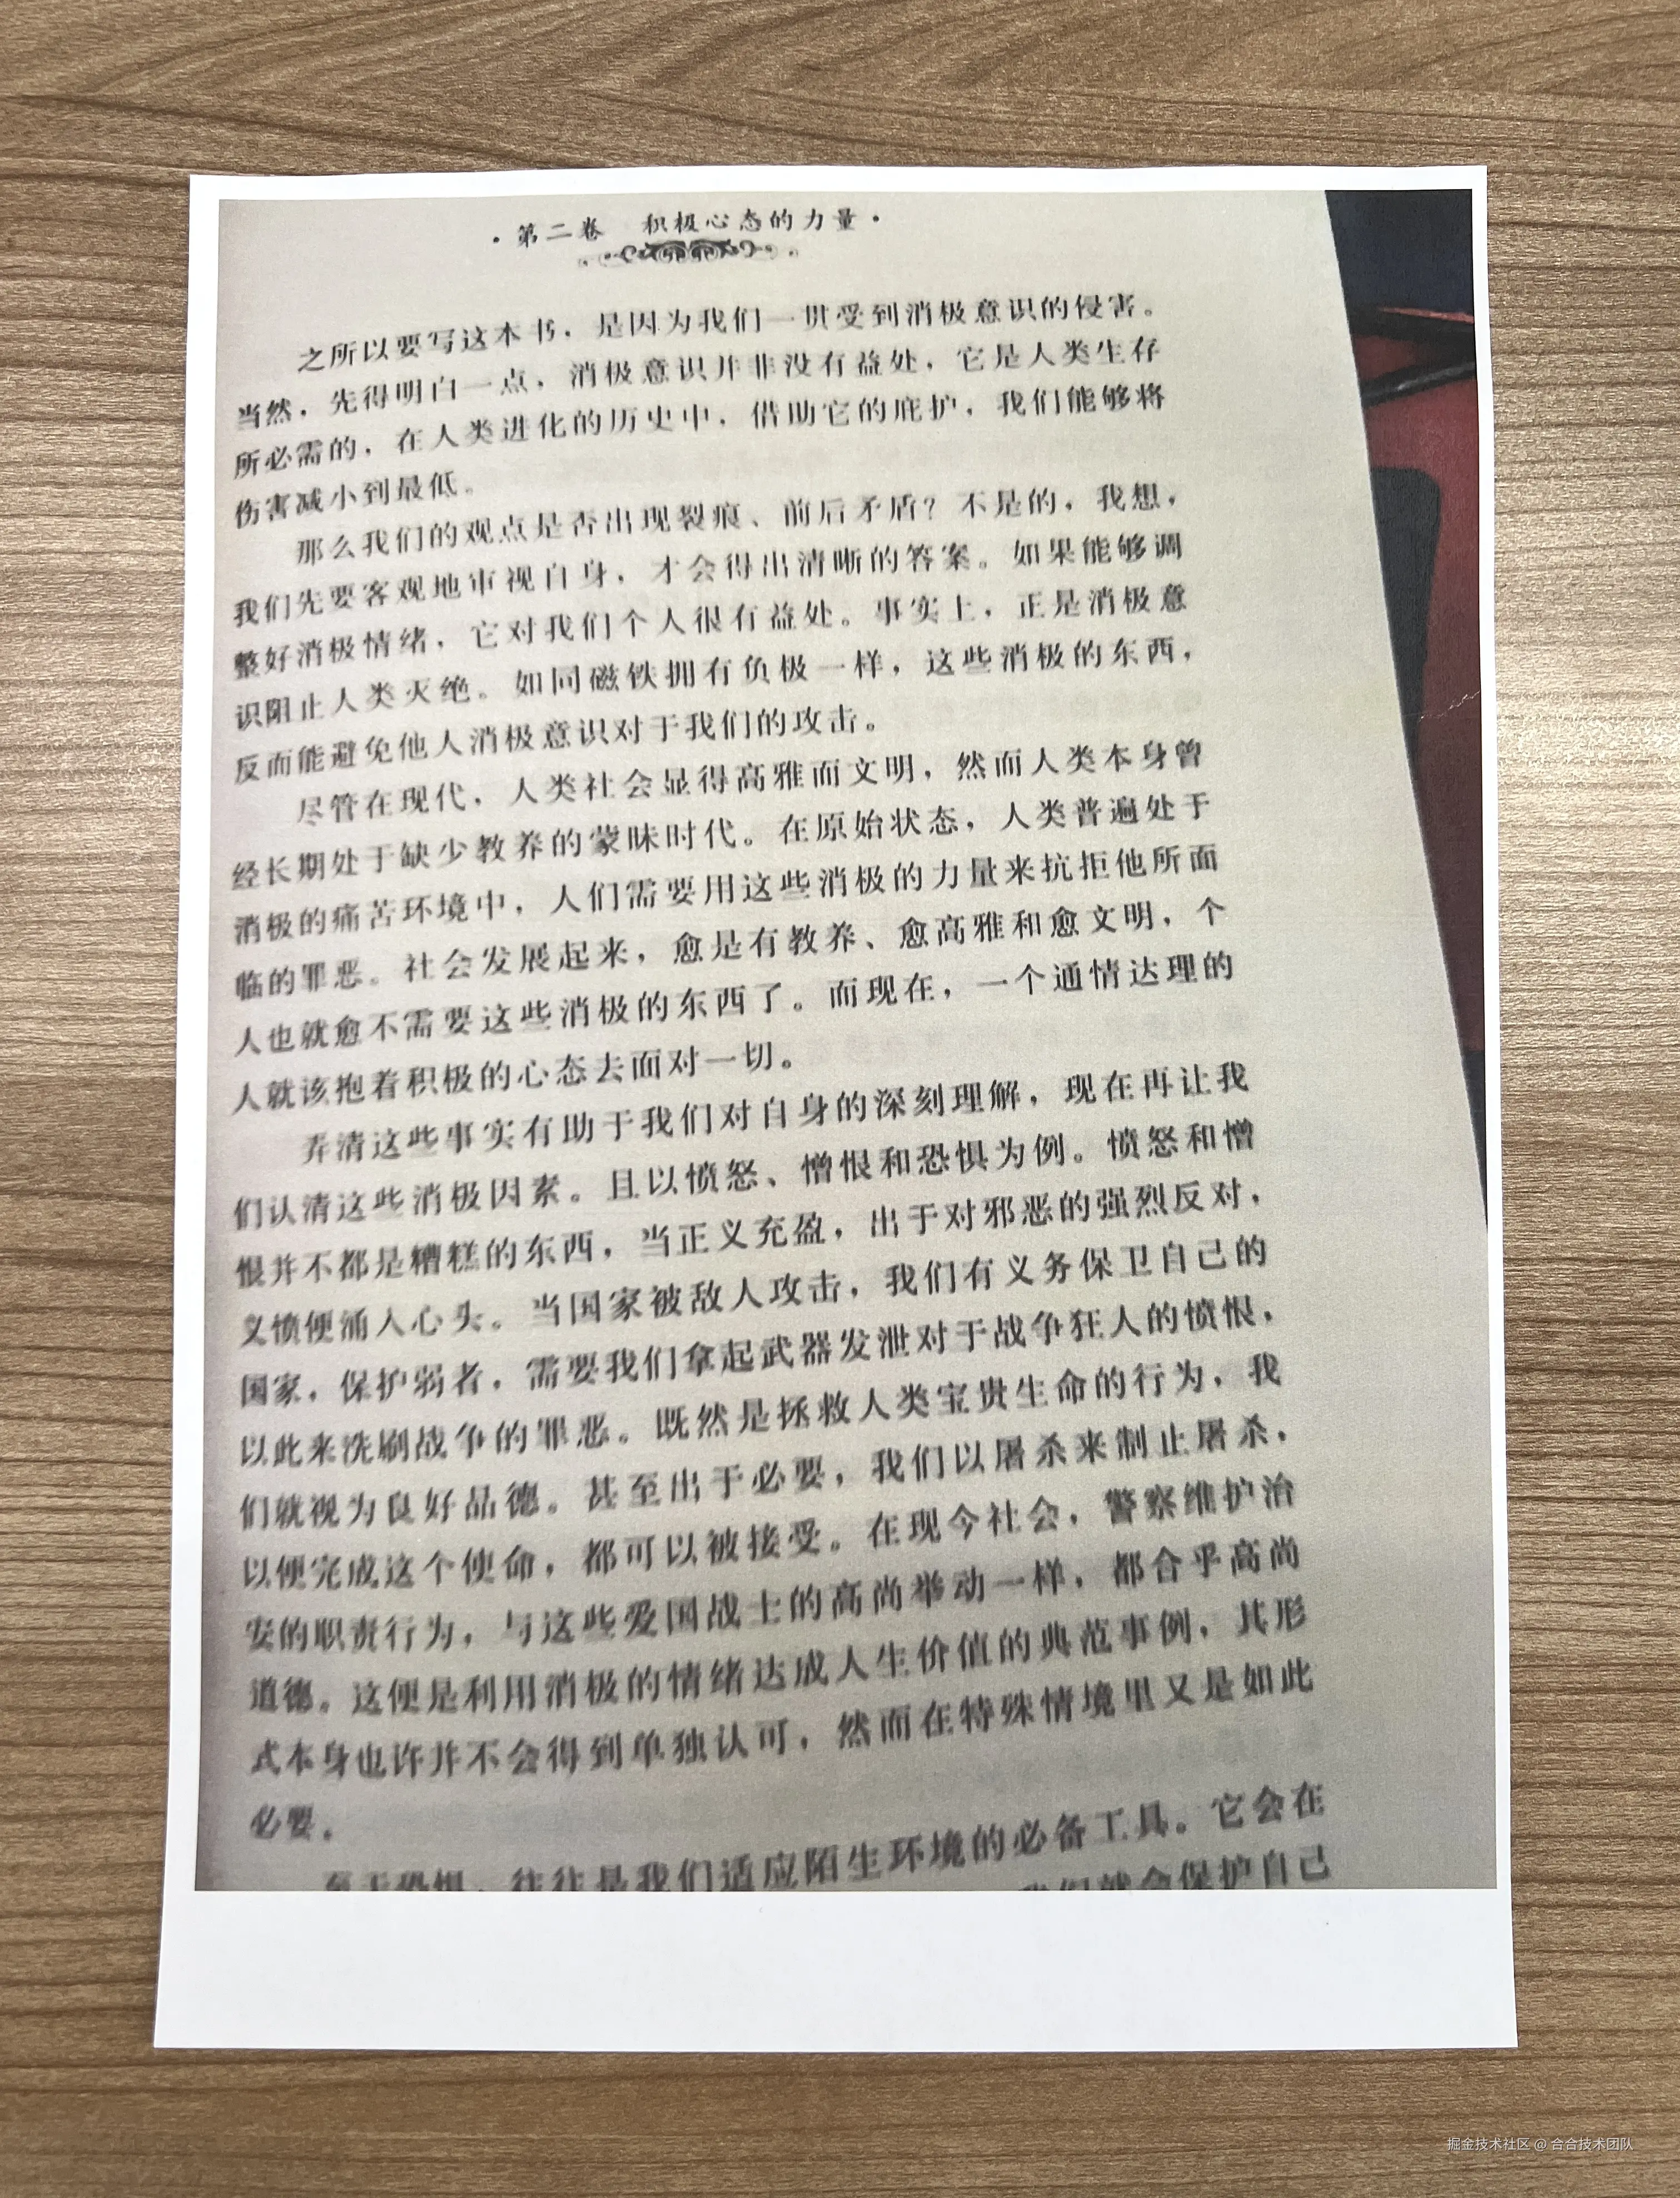 ·第二卷 积极心态的力量·
之所以要写这本书，是因为我们一贯受到消极意识的侵害。
当然，先得明白一点，消极意识并非没有益处，它是人类生存
所必需的，在人类进化的历史中，借助它的庇护，我们能够将
伤害减小到最低。
那么我们的观点是否出现裂痕、前后矛盾？不是的，我想，
我们先要客观地审视自身，才会得出清晰的答案。如果能够调
整好消极情绪，它对我们个人很有益处。事实上，正是消极意
识阻止人类灭绝。如同磁铁拥有负极一样，这些消极的东西，
反而能避免他人消极意识对于我们的攻击。
尽管在现代，人类社会显得高雅而文明，然而人类本身曾
经长期处于缺少教养的蒙昧时代。在原始状态，人类普遍处于
消极的痛苦环境中，人们需要用这些消极的力量来抗拒他所面
临的罪恶。社会发展起来，愈是有教养、愈高雅和愈文明，个
人也就愈不需要这些消极的东西了。而现在，一个通情达理的
人就该抱着积极的心态去面对一切。
弄清这些事实有助于我们对自身的深刻理解，现在再让我
们认清这些消极因素。且以愤怒、憎恨和恐惧为例。愤怒和憎
恨并不都是糟糕的东西，当正义充盈，出于对邪恶的强烈反对，
义愤便涌入心头。当国家被敌人攻击，我们有义务保卫自己的
国家，保护弱者，需要我们拿起武器发泄对于战争狂人的愤恨，
以此来洗刷战争的罪恶。既然是拯救人类宝贵生命的行为，我
们就视为良好品德。甚至出于必要，我们以屠杀来制止屠杀，
以便完成这个使命，都可以被接受。在现今社会，警察维护治
安的职责行为，与这些爱国战士的高尚举动一样，都合乎高尚
道德。这便是利用消极的情绪达成人生价值的典范事例，其形
式本身也许并不会得到单独认可，然而在特殊情境里又是如此
必要。
至于恐惧，往往是我们适应陌生环境的必备工具。它会在
我们就会保护自己
掘金技术社区 @ 合合技术团队